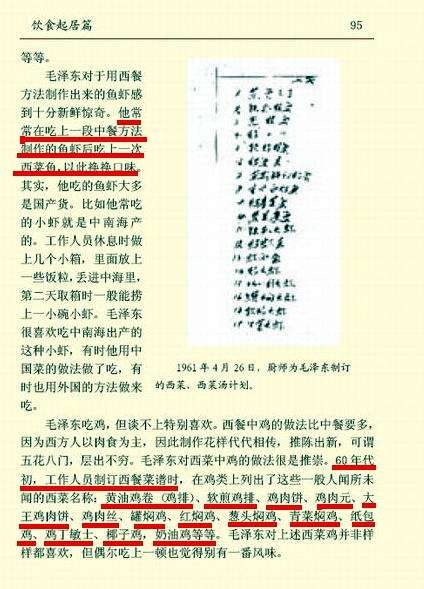 饮食起居篇 95
等等。
毛泽东对于用西餐
方法制作出来的鱼虾感
到十分新鲜惊奇。他常
常在吃上一段中餐方法
制作的鱼虾后吃上一次
西菜鱼,以此换换口味。
其实,他吃的鱼虾大多
是国产货。比如他常吃
的小虾就是中南海产
的。工作人员休息时做
上几个小箱,里面放上
一些饭粒,丢进中海里,
第二天取箱时一般能捞
上一小碗小虾。毛泽东
很喜欢吃中南海出产的
这种小虾,有时他用中
国菜的做法做了吃,有
时也用外国的方法做来
吃。
1961年4月26日,厨师为毛泽东制订
的西菜、西菜汤计划。
毛泽东吃鸡,但谈不上特别喜欢。西餐中鸡的做法比中餐要多,
因为西方人以肉食为主,因此制作花样代代相传,推陈出新,可谓
五花八门,层出不穷。毛泽东对西菜中鸡的做法很是推崇。60年代
初,工作人员制订西餐菜谱时,在鸡类上列出了这些一般人闻所未
闻的西菜名称:黄油鸡卷(鸡排)、软煎鸡排、鸡肉饼、鸡肉元、大
王鸡肉饼、鸡肉丝、罐焖鸡、红焖鸡、葱头焖鸡、青菜焖鸡、纸包
鸡、鸡丁敏士、椰子鸡,奶油鸡等等。毛泽东对上述西菜鸡并非样
样都喜欢,但偶尔吃上一顿也觉得别有一番风味。